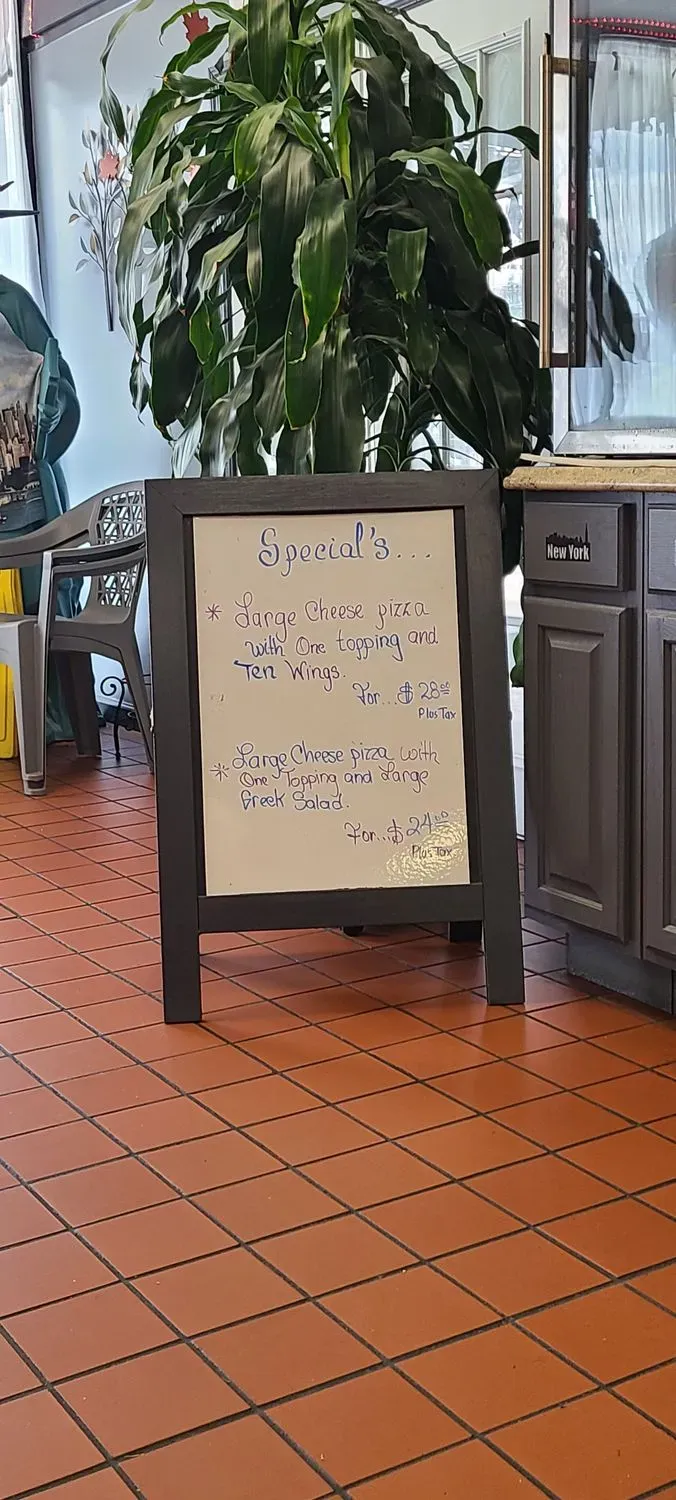 Special's...
* Large Cheese pizza
with One topping and
Ten Wings.
For...$ 28.00
Plus Tax
* Large Cheese pizza with
One Topping and Large
Greek Salad.
For...$ 24.00
Plus Tax
New York